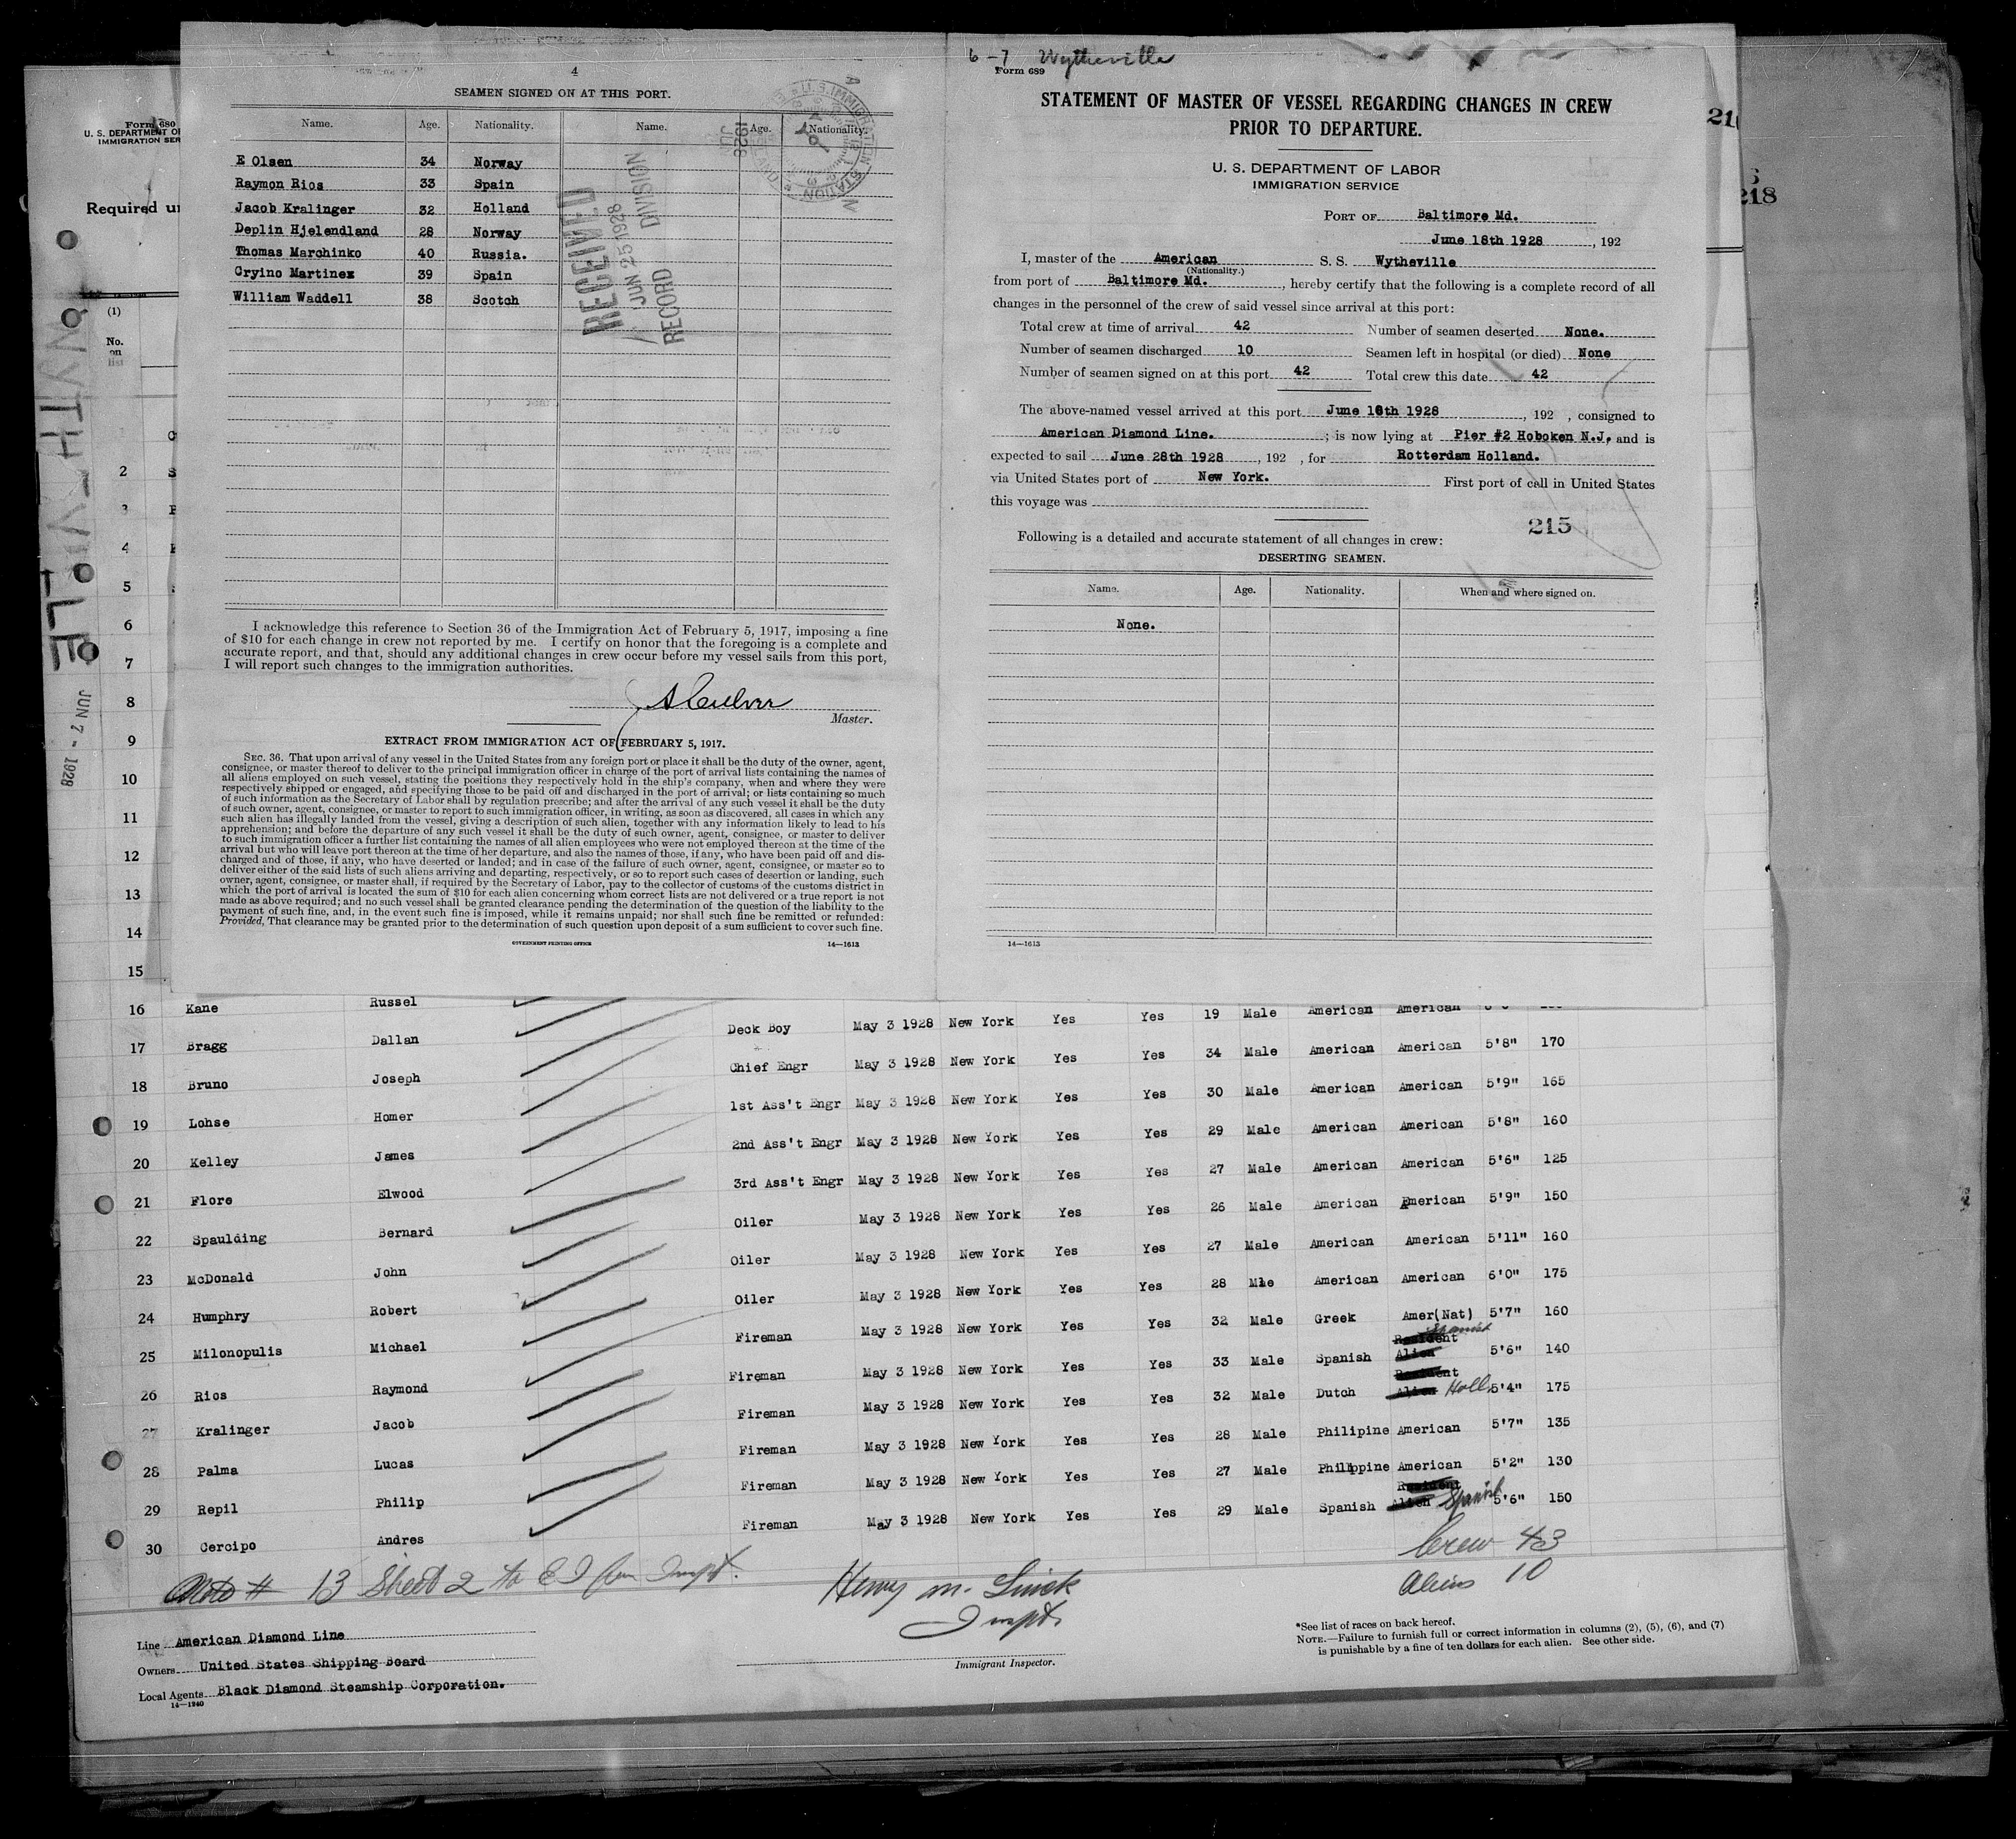 4
SEAMEN SIGNED ON AT THIS PORT.
Name. Age. Nationality. Name. Age. Nationality.
E Olsen 34 Norway
Raymon Rios 33 Spain
Jacob Kralinger 32 Holland
Deplin Hjelendland 28 Norway
Thomas Marchinko 40 Russia.
Cryino Martinez 39 Spain
William Waddell 38 Scotch
RECEIVED
JUN 25 1928
RECORD DIVISION
U. S. IMMIGRATION STATION
1928
I acknowledge this reference to Section 36 of the Immigration Act of February 5, 1917, imposing a fine
of $10 for each change in crew not reported by me. I certify on honor that the foregoing is a complete and
accurate report, and that, should any additional changes in crew occur before my vessel sails from this port,
I will report such changes to the immigration authorities.
Master.
EXTRACT FROM IMMIGRATION ACT OF FEBRUARY 5, 1917.
SEC. 36. That upon arrival of any vessel in the United States from any foreign port or place it shall be the duty of the owner, agent,
consignee, or master thereof to deliver to the principal immigration officer in charge of the port of arrival lists containing the names of
all aliens employed on such vessel, stating the positions they respectively hold in the ship's company, when and where they were
respectively shipped or engaged, and specifying those to be paid off and discharged in the port of arrival; or lists containing so much
of such information as the Secretary of Labor shall by regulation prescribe; and after the arrival of any such vessel it shall be the duty
of such owner, agent, consignee, or master to report to such immigration officer, in writing, as soon as discovered, all cases in which any
such alien has illegally landed from the vessel, giving a description of such alien, together with any information likely to lead to his
apprehension; and before the departure of any such vessel it shall be the duty of such owner, agent, consignee, or master to deliver
to such immigration officer a further list containing the names of all alien employees who were not employed thereon at the time of the
arrival but who will leave port thereon at the time of her departure, and also the names of those, if any, who have been paid off and dis-
charged and of those, if any, who have deserted or landed; and in case of the failure of such owner, agent, consignee, or master so to
deliver either of the said lists of such aliens arriving and departing, respectively, or so to report such cases of desertion or landing, such
owner, agent, consignee, or master shall, if required by the Secretary of Labor, pay to the collector of customs of the customs district in
which the port of arrival is located the sum of $10 for each alien concerning whom correct lists are not delivered or a true report is not
made as above required; and no such vessel shall be granted clearance pending the determination of the question of the liability to the
payment of such fine, and, in the event such fine is imposed, while it remains unpaid; nor shall such fine be remitted or refunded:
Provided, That clearance may be granted prior to the determination of such question upon deposit of a sum sufficient to cover such fine.
GOVERNMENT PRINTING OFFICE 14—1613
6-7 Wytheville
Form 689
STATEMENT OF MASTER OF VESSEL REGARDING CHANGES IN CREW
PRIOR TO DEPARTURE.
U. S. DEPARTMENT OF LABOR
IMMIGRATION SERVICE
PORT OF Baltimore Md.
June 18th 1928, 192
I, master of the American S. S. Wytheville
(Nationality.)
from port of Baltimore Md., hereby certify that the following is a complete record of all
changes in the personnel of the crew of said vessel since arrival at this port:
Total crew at time of arrival 42 Number of seamen deserted None.
Number of seamen discharged 10 Seamen left in hospital (or died) None
Number of seamen signed on at this port 42 Total crew this date 42
The above-named vessel arrived at this port June 18th 1928, 192 , consigned to
American Diamond Line. ; is now lying at Pier #2 Hoboken N.J. and is
expected to sail June 28th 1928, 192 , for Rotterdam Holland.
via United States port of New York. First port of call in United States
this voyage was
215
Following is a detailed and accurate statement of all changes in crew:
DESERTING SEAMEN.
Name. Age. Nationality. When and where signed on.
None.
14—1613
Form 680
U. S. DEPARTMENT OF
IMMIGRATION SER
Required un
(1)
No.
on
list
WYTHEVILLE
JUN 7 - 1928
218
2
3
4
5
6
7
8
9
10
11
12
13
14
15
16 Kane Russel Deck Boy May 3 1928 New York Yes Yes 19 Male American American
17 Bragg Dallan Chief Engr May 3 1928 New York Yes Yes 34 Male American American 5'8" 170
18 Bruno Joseph 1st Ass't Engr May 3 1928 New York Yes Yes 30 Male American American 5'9" 165
19 Lohse Homer 2nd Ass't Engr May 3 1928 New York Yes Yes 29 Male American American 5'8" 160
20 Kelley James 3rd Ass't Engr May 3 1928 New York Yes Yes 27 Male American American 5'6" 125
21 Flore Elwood Oiler May 3 1928 New York Yes Yes 26 Male American American 5'9" 150
22 Spaulding Bernard Oiler May 3 1928 New York Yes Yes 27 Male American American 5'11" 160
23 McDonald John Oiler May 3 1928 New York Yes Yes 28 Mle American American 6'0" 175
24 Humphry Robert Fireman May 3 1928 New York Yes Yes 32 Male Greek Amer(Nat) 5'7" 160
25 Milonopulis Michael Fireman May 3 1928 New York Yes Yes 33 Male Spanish Resident Alien Spanish 5'6" 140
26 Rios Raymond Fireman May 3 1928 New York Yes Yes 32 Male Dutch Resident Alien Holl 5'4" 175
27 Kralinger Jacob Fireman May 3 1928 New York Yes Yes 28 Male Philipine American 5'7" 135
28 Palma Lucas Fireman May 3 1928 New York Yes Yes 27 Male Philippine American 5'2" 130
29 Repil Philip Fireman May 3 1928 New York Yes Yes 29 Male Spanish Resident Alien Spanish 5'6" 150
30 Cercipo Andres
Note # 13 Sheet 2 to E I
Henry M.
Inspt.
Crew 43
Aliens 10
Line American Diamond Line
Owners United States Shipping Board
Local Agents Black Diamond Steamship Corporation.
14—1240
Immigrant Inspector.
*See list of races on back hereof.
NOTE.—Failure to furnish full or correct information in columns (2), (5), (6), and (7)
is punishable by a fine of ten dollars for each alien. See other side.